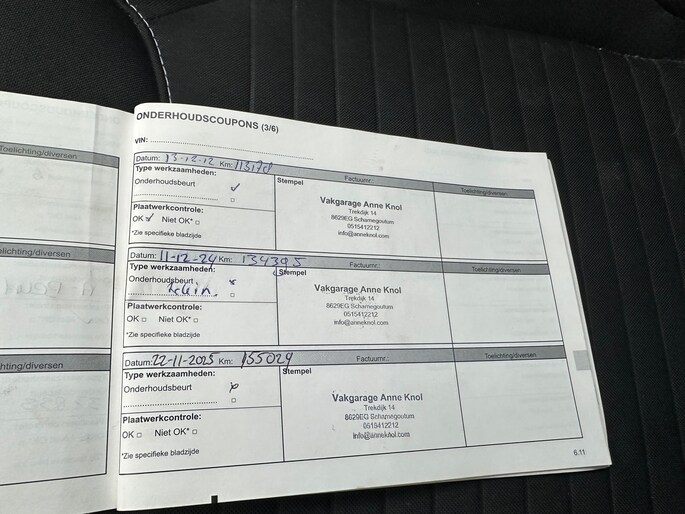 Toelichting/diversen
hting/diversen
ONDERHOUDSCOUPONS (3/6)
VIN:
Datum: 13-12-12 Km: 113178 Factuurnr.: Toelichting/diversen
Type werkzaamheden: Stempel
Onderhoudsbeurt ✓
Plaatwerkcontrole:
OK ✓ Niet OK*
*Zie specifieke bladzijde
Vakgarage Anne Knol
Trekdijk 14
8629EG Scharnegoutum
0515412212
info@anneknol.com
Datum: 11-12-24 Km: 134395 Factuurnr.: Toelichting/diversen
Type werkzaamheden: Stempel
Onderhoudsbeurt x
klein.
Plaatwerkcontrole:
OK Niet OK*
*Zie specifieke bladzijde
Vakgarage Anne Knol
Trekdijk 14
8629EG Scharnegoutum
0515412212
info@anneknol.com
Datum: 22-11-2025 Km: 155029 Factuurnr.: Toelichting/diversen
Type werkzaamheden: Stempel
Onderhoudsbeurt x
Plaatwerkcontrole:
OK Niet OK*
*Zie specifieke bladzijde
Vakgarage Anne Knol
Trekdijk 14
8629EG Scharnegoutum
0515412212
info@anneknol.com
6.11